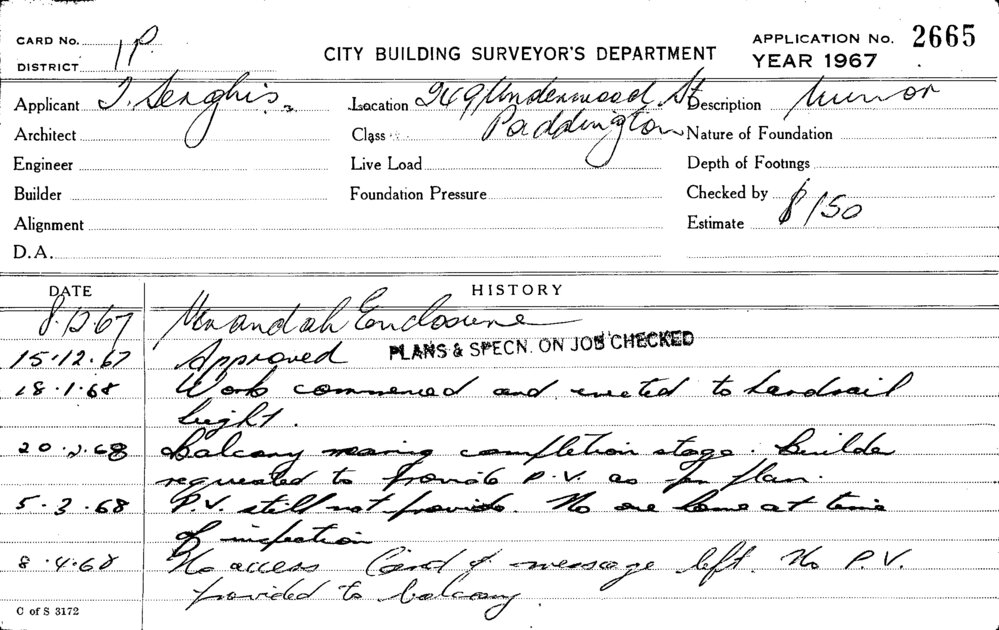 CARD No. 1P
DISTRICT
CITY BUILDING SURVEYOR'S DEPARTMENT
APPLICATION No. 2665
YEAR 1967
Applicant T. Serghis. Location 249 Underwood St Description Minor
Architect Class Paddington Nature of Foundation
Engineer Live Load Depth of Footings
Builder Foundation Pressure Checked by
Alignment Estimate $150
D.A.
DATE HISTORY
8.12.67 Verandah Enclosure
15.12.67 Approved PLANS & SPECN. ON JOB CHECKED
18.1.68 Work commenced and erected to handrail
height.
20.2.68 Balcony nearing completion stage. Builder
requested to provide P.V. as per plan.
5.3.68 P.V. still not provided. No one home at time
of inspection
8.4.68 No access Card of message left. No P.V.
provided to balcony.
C of S 3172